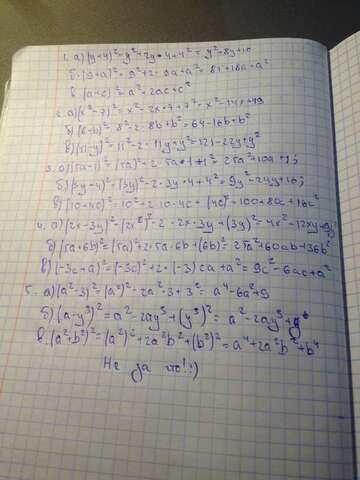 1. а) (y+4)² = y²+2y•4+4² = y²+8y+16
б) (9+a)² = 9²+2·9a+a² = 81+18a+a²
в) (a+c)² = a²+2ac+c²
2. а) (x-7)² = x²-2x•7+7² = x²-14x+49
б) (8-b)² = 8²-2·8b+b² = 64-16b+b²
в) (11-y)² = 11²-2·11y+y² = 121-22y+y²
3. а) (5a+1)² = (5a)²+2·5a•1+1² = 25a²+10a+1;
б) (3y-4)² = (3y)²-2·3y•4+4² = 9y²-24y+16;
в) (10+4c)² = 10²+2·10·4c+(4c)² = 100+80c+16c²
4. а) (2x-3y)² = (2x)²-2·2x·3y+(3y)² = 4x²-12xy+9y²
б) (5a+6b)² = (5a)²+2·5a·6b+(6b)² = 25a²+60ab+36b²
в) (-3c+a)² = (-3c)²+2·(-3)ca+a² = 9c²-6ac+a²
5. а) (a²-3)² = (a²)²-2a²·3+3² = a⁴-6a²+9
б) (a-y³)² = a²-2ay³+(y³)² = a²-2ay³+y⁶
в. (a²+b²)² = (a²)²+2a²b²+(b²)² = a⁴+2a²b²+b⁴
Не за что!!)